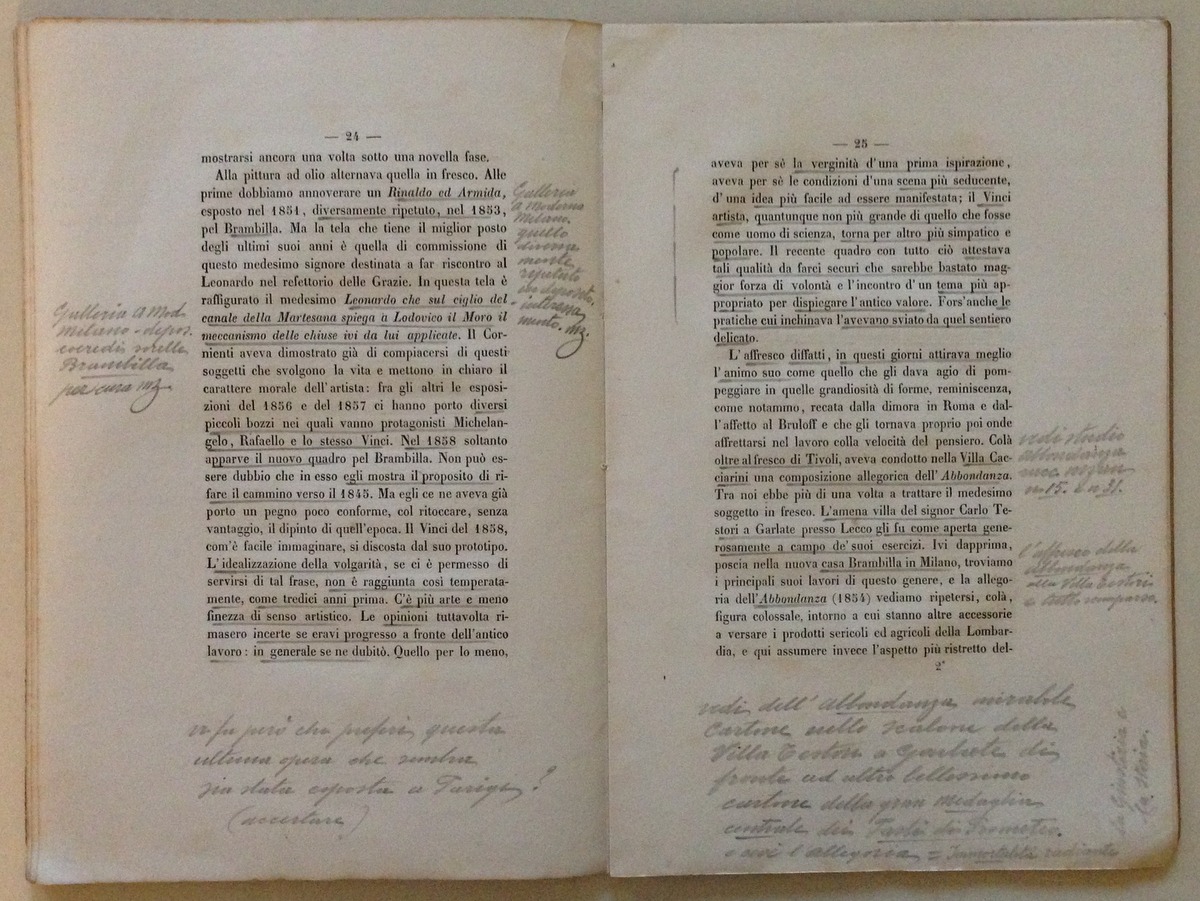 — 24 —
mostrarsi ancora una volta sotto una novella fase.
Alla pittura ad olio alternava quella in fresco. Alle
prime dobbiamo annoverare un Rinaldo ed Armida,
esposto nel 1851, diversamente ripetuto, nel 1853,
pel Brambilla. Ma la tela che tiene il miglior posto
degli ultimi suoi anni è quella di commissione di
questo medesimo signore destinata a far riscontro al
Leonardo nel refettorio delle Grazie. In questa tela è
raffigurato il medesimo Leonardo che sul ciglio del
canale della Martesana spiega a Lodovico il Moro il
meccanismo delle chiuse ivi da lui applicate. Il Cor-
nienti aveva dimostrato già di compiacersi di questi
soggetti che svolgono la vita e mettono in chiaro il
carattere morale dell'artista: fra gli altri le esposi-
zioni del 1856 e del 1857 ci hanno porto diversi
piccoli bozzi nei quali vanno protagonisti Michelan-
gelo, Rafaello e lo stesso Vinci. Nel 1858 soltanto
apparve il nuovo quadro pel Brambilla. Non può es-
sere dubbio che in esso egli mostra il proposito di ri-
fare il cammino verso il 1845. Ma egli ce ne aveva già
porto un pegno poco conforme, col ritoccare, senza
vantaggio, il dipinto di quell'epoca. Il Vinci del 1858,
com'è facile immaginare, si discosta dal suo prototipo.
L'idealizzazione della volgarità, se ci è permesso di
servirsi di tal frase, non è raggiunta così temperata-
mente, come tredici anni prima. C'è più arte e meno
finezza di senso artistico. Le opinioni tuttavolta ri-
masero incerte se eravi progresso a fronte dell'antico
lavoro: in generale se ne dubitò. Quello per lo meno,
Galleria
d Moderna
Milano.
quello
diversa
mente
ripetuto
in deposito
Galleria d Mod
Milano - depos.
eredi
Brambilla
per cura
vi fu però che preferì questa
ultima opera che sembra
sia stata esposta a Parigi?
(accertare)
— 25 —
aveva per sè la verginità d'una prima ispirazione,
aveva per sè le condizioni d'una scena più seducente,
d'una idea più facile ad essere manifestata; il Vinci
artista, quantunque non più grande di quello che fosse
come uomo di scienza, torna per altro più simpatico e
popolare. Il recente quadro con tutto ciò attestava
tali qualità da farci securi che sarebbe bastato mag-
gior forza di volontà e l'incontro d'un tema più ap-
propriato per dispiegare l'antico valore. Fors'anche le
pratiche cui inchinava l'avevano sviato da quel sentiero
delicato.
L'affresco diffatti, in questi giorni attirava meglio
l'animo suo come quello che gli dava agio di pom-
peggiare in quelle grandiosità di forme, reminiscenza,
come notammo, recata dalla dimora in Roma e dal-
l'affetto al Bruloff e che gli tornava proprio poi onde
affrettarsi nel lavoro colla velocità del pensiero. Colà
oltre al fresco di Tivoli, aveva condotto nella Villa Cac-
ciarini una composizione allegorica dell'Abbondanza.
Tra noi ebbe più di una volta a trattare il medesimo
soggetto in fresco. L'amena villa del signor Carlo Te-
stori a Garlate presso Lecco gli fu come aperta gene-
rosamente a campo de' suoi esercizi. Ivi dapprima,
poscia nella nuova casa Brambilla in Milano, troviamo
i principali suoi lavori di questo genere, e la allego-
ria dell'Abbondanza (1854) vediamo ripetersi, colà,
figura colossale, intorno a cui stanno altre accessorie
a versare i prodotti sericoli ed agricoli della Lombar-
dia, e qui assumere invece l'aspetto più ristretto del-
2*
vedi studio
abbondanza
n. 15. e n. 31.
l'affresco della
Abbondanza
alla Villa Testori
è tutto scomparso.
vedi dell'abbondanza mirabile
Cartone nello scalone della
Villa Testori a Garlate di
fronte ad altro bellissimo
cartone della gran Medaglia
centrale dei Fasti di Prometeo.
e ivi l'allegoria = Immortalità radiante
la Giustizia e
la Storia.